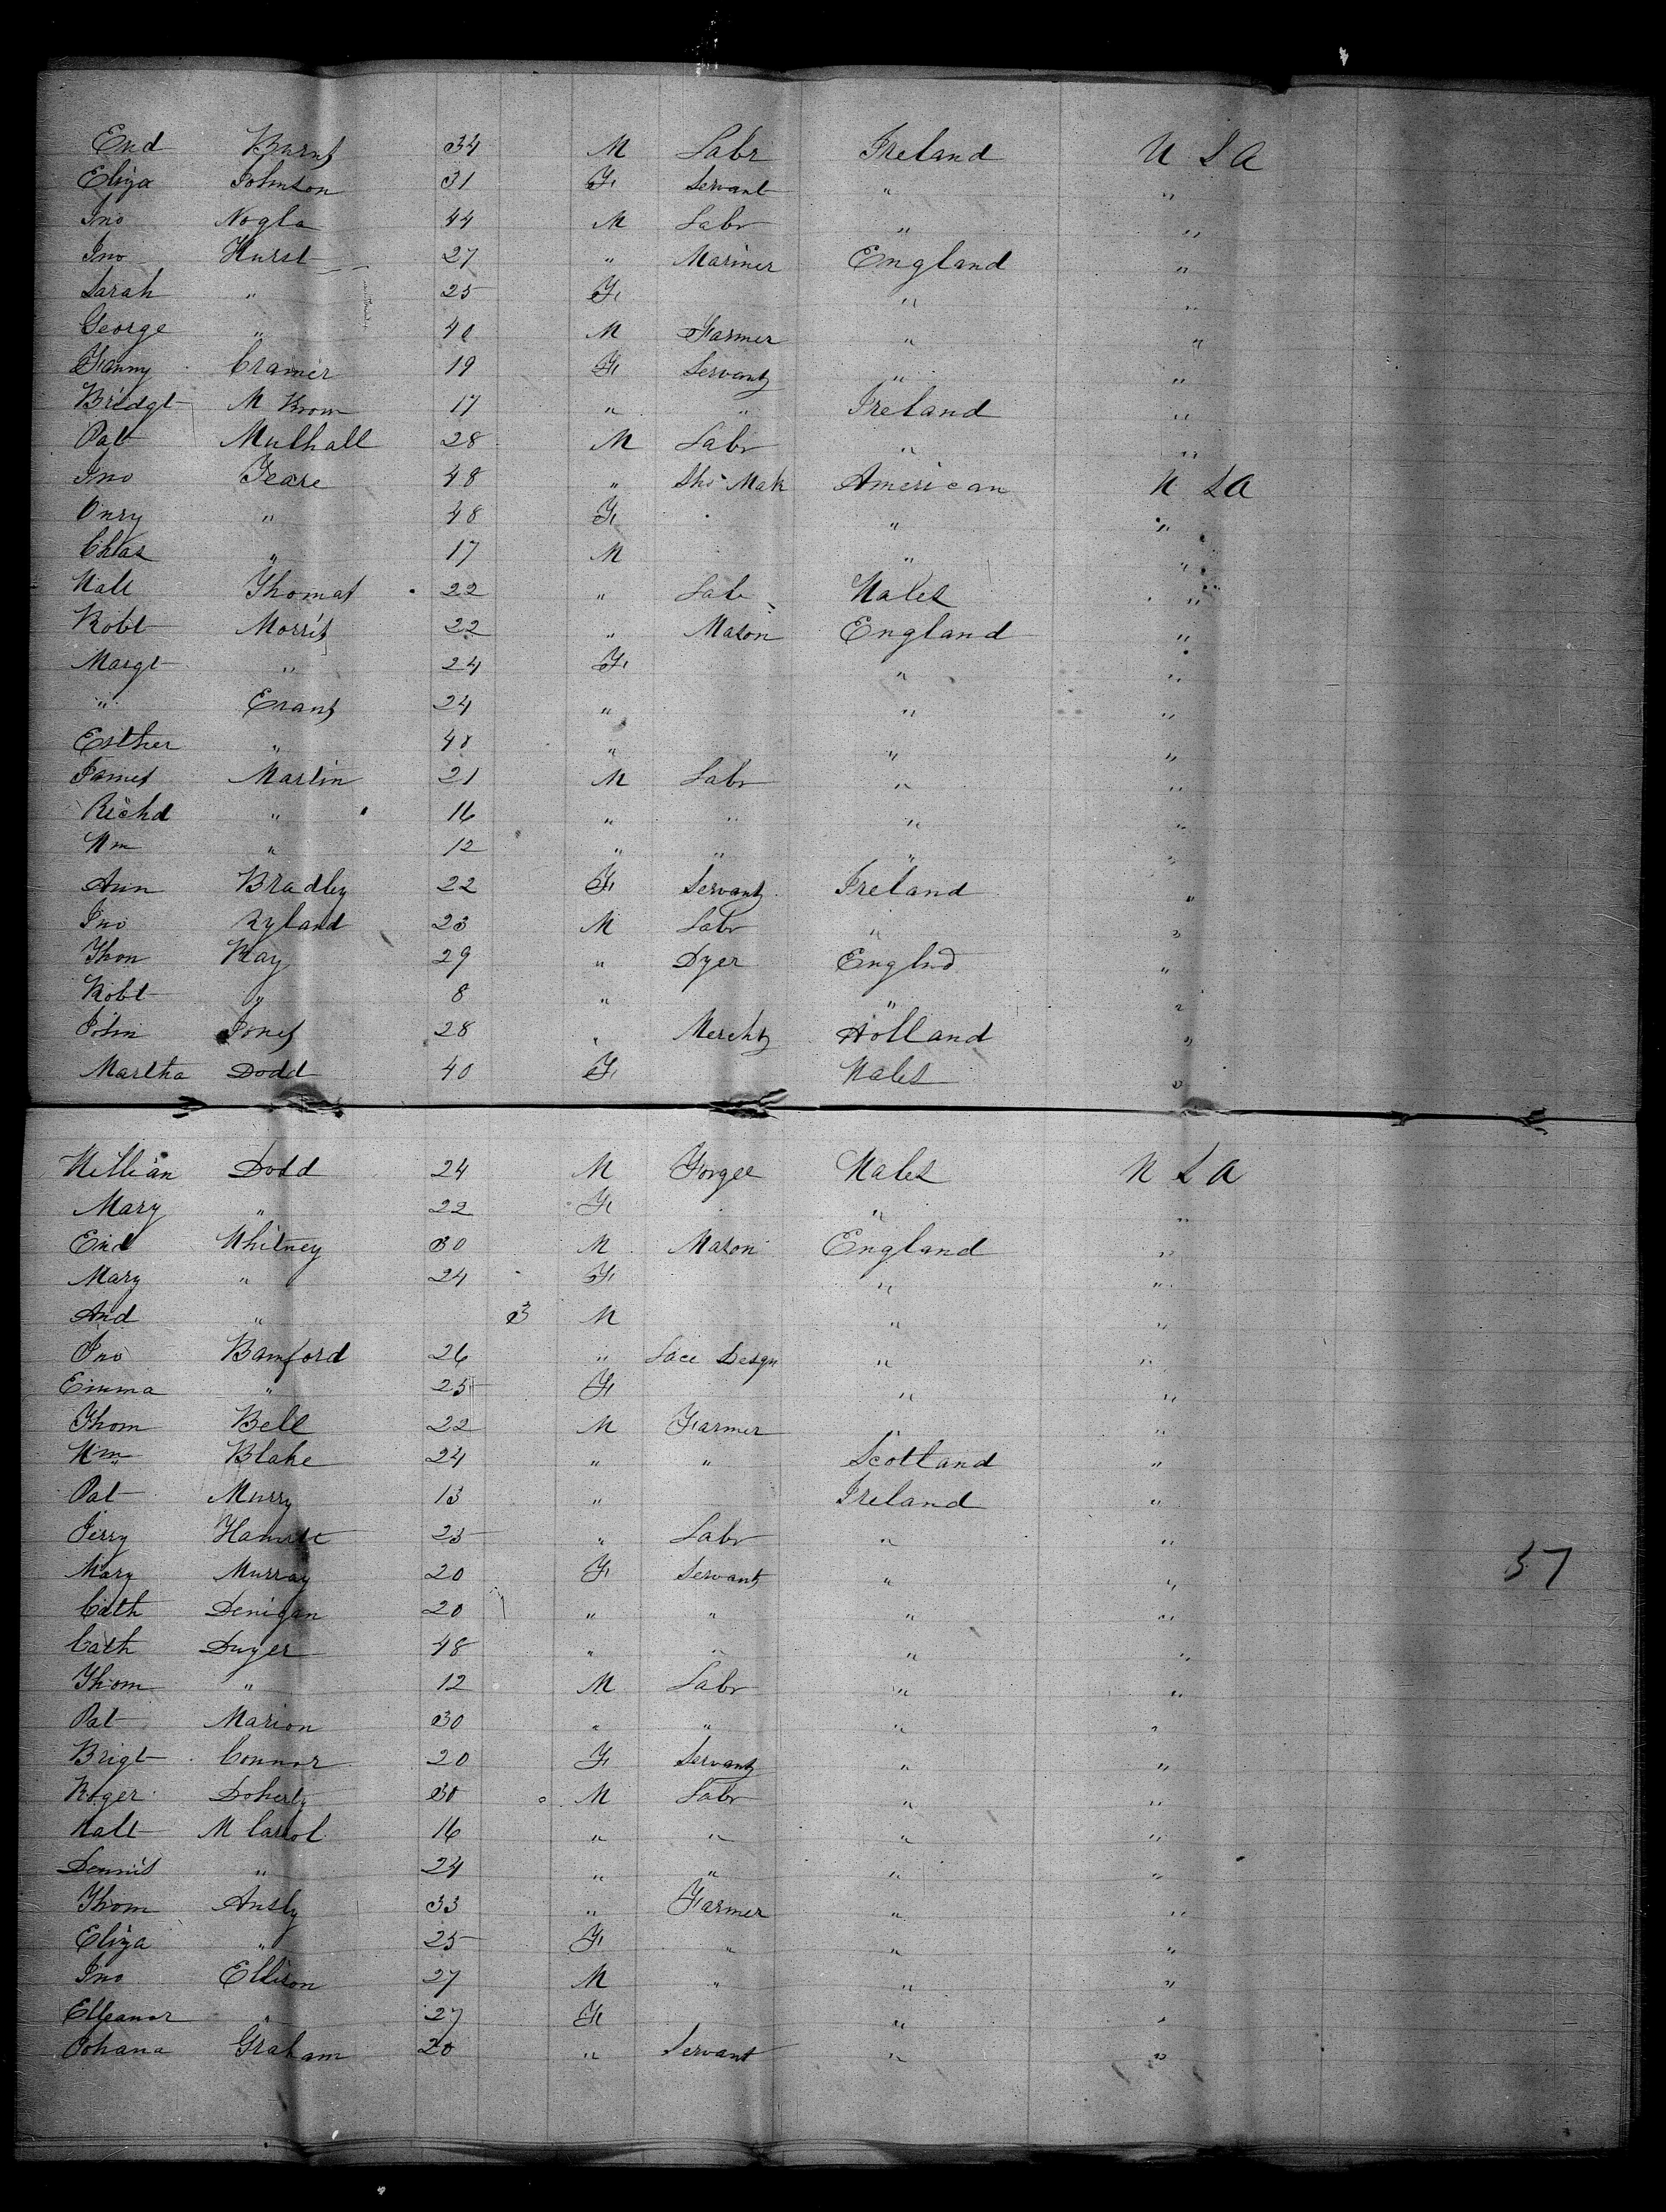 End Burns 34 M Labr Ireland U S A
Eliza Johnson 31 F Servant " "
Jno Nogla 44 M Labr " "
Jno Hurst 27 " Mariner England "
Sarah " 25 F " "
George " 40 M Farmer " "
Fanny Cramer 19 F Servant " "
Bridgt M Krom 17 " " Ireland "
Pat Mulhall 28 M Labr " "
Jno Teare 48 " Sho Mak American U S A
Onry " 48 F " "
Chas " 17 M " "
Walt Thomas 22 " Lab Wales "
Robt Morris 22 " Mason England "
Margt " 24 F " "
" Evans 24 " " "
Esther " 48 " " "
James Martin 21 M Labr " "
Richd " 16 " " " "
Wm " 12 " " " "
Ann Bradley 22 F Servant Ireland "
Jno Ryland 23 M Labr " "
Thom Kay 29 " Dyer Englnd "
Robt " 8 " " "
John Jones 28 " Mercht Holland "
Martha Dodd 40 F Wales "
William Dodd 24 M Forgee Wales U S A
Mary " 22 F " "
End Whitney 30 M Mason England "
Mary " 24 F " "
And " 3 M " "
Jno Bamford 26 " Lace Desgn " "
Emma " 25 F " "
Thom Bell 22 M Farmer " "
Wm Blake 24 " " Scotland "
Pat Murry 13 " Ireland "
Jerry 25 " Labr " "
Mary Murray 20 F Servant " " 57
Cath Denigan 20 " " " "
Cath Dwyer 48 " " " "
Thom " 12 M Labr " "
Pat Marion 30 " " " "
Brigt Connor 20 F Servant " "
Roger Doherty 30 M Labr " "
Walt M Carrol 16 " " " "
Dennis " 24 " " " "
Thom Ansly 33 " Farmer " "
Eliza " 25 F " " "
Jno Ellison 27 M " " "
Elleanor " 27 F " "
Johana Graham 20 " Servant " "